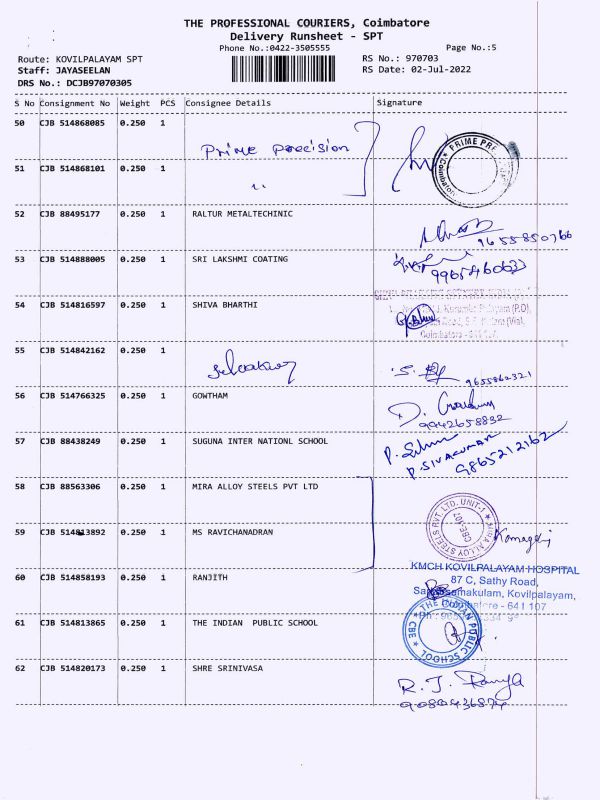 THE PROFESSIONAL COURIERS, Coimbatore
Delivery Runsheet - SPT
Phone No.:0422-3505555
Page No.:5
Route: KOVILPALAYAM SPT
RS No.: 970703
Staff: JAYASEELAN
RS Date: 02-Jul-2022
DRS No.: DCJB97070305
S No Consignment No Weight PCS Consignee Details Signature
50 CJB 514868085 0.250 1 Prime Precision
PRIME PRE
51 CJB 514868101 0.250 1
52 CJB 88495177 0.250 1 RALTUR METALTECHINIC
9655850766
53 CJB 514888005 0.250 1 SRI LAKSHMI COATING
54 CJB 514816597 0.250 1 SHIVA BHARTHI
55 CJB 514842162 0.250 1
9655862321
56 CJB 514766325 0.250 1 GOWTHAM
9942658832
57 CJB 88438249 0.250 1 SUGUNA INTER NATIONL SCHOOL
P. SIVAKUMAR
9865212162
58 CJB 88563306 0.250 1 MIRA ALLOY STEELS PVT LTD
MIRA ALLOY STEELS PVT. LTD. UNIT-1
CBE-107
59 CJB 514813892 0.250 1 MS RAVICHANADRAN
KMCH KOVILPALAYAM HOSPITAL
60 CJB 514858193 0.250 1 RANJITH
87 C, Sathy Road,
Kovilpalayam,
641 107
61 CJB 514813865 0.250 1 THE INDIAN PUBLIC SCHOOL
THE INDIAN PUBLIC SCHOOL
CBE
62 CJB 514820173 0.250 1 SHRE SRINIVASA
R. J. Ramya
9080436874